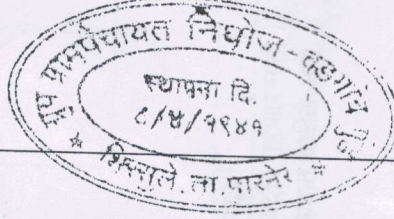 ग्रुप ग्रामपंचायत निघोज - वडगांव गुंड
स्थापना दि.
८/४/१९४१
शिरसुले, ता. पारनेर